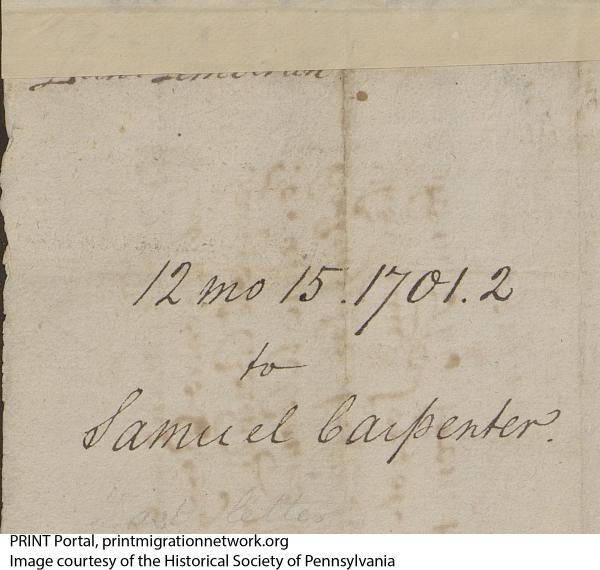 12 mo 15. 1701.2
to
Samuel Carpenter.
letter
PRINT Portal, printmigrationnetwork.org
Image courtesy of the Historical Society of Pennsylvania